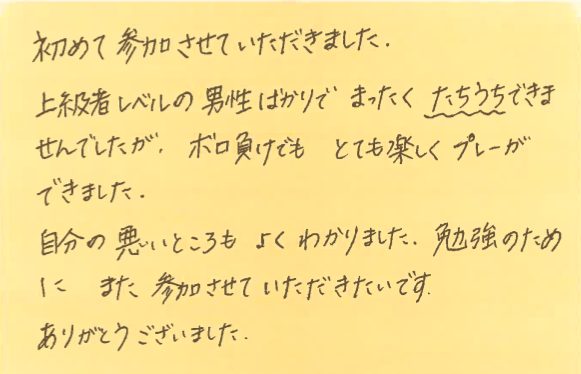 初めて参加させていただきました.
上級者レベルの男性ばかりで まったく たちうちできま
せんでしたが, ボロ負けでも とても楽しく プレーが
できました.
自分の悪いところも よく わかりました. 勉強のため
に また 参加させていただきたいです.
ありがとうございました.